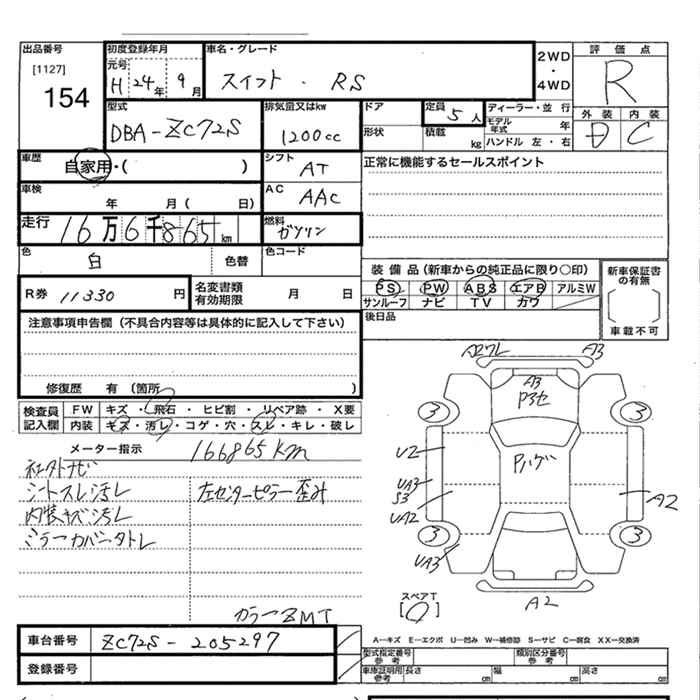 出品番号
[1127]
154
初度登録年月
元号
H 24 年 9 月
車名・グレード
スイフト ・ RS
2WD
・
4WD
評価点
R
外装 内装
D C
型式
DBA-ZC72S
排気量又はkw
1200cc
ドア
形状
定員 5 人
積載 kg
ディーラー・並 行
モデル年式 年
ハンドル 左 ・ 右
車歴
自家用・( )
シフト
AT
正常に機能するセールスポイント
車検
年 月 ( 日)
AC
AAC
走行
16 万 6 千 865 km
燃料
ガソリン
色
白
色替
色コード
R券 11330 円
名変書類
有効期限
月 日
装備品(新車からの純正品に限り○印)
PS PW ABS エアB アルミW
サンルーフ ナビ TV カワ
新車保証書
の有無
[ ]
車載不可
後日品
注意事項申告欄 (不具合内容等は具体的に記入して下さい)
修復歴 有 (箇所 )
検査員
記入欄
FW キズ ・ 飛石 ・ ヒビ割 ・ リペア跡 ・ X要
内装 キズ・汚レ・コゲ・穴・スレ・キレ・破レ
メーター指示 166865km
社外ナビ
シートスレ汚レ
内装キズ汚レ
ミラーカバータトレ
左センターピラー歪み
カラーZMT
A2ワレ A3
A3
P3セ
3 3
U2
Pハゲ
UA3
S3
UA2
A2
3 3
UA3
A2
スペアT
[○]
車台番号 ZC72S-205297
登録番号
A―キズ E―エクボ U―凹み W―補修跡 S―サビ C―腐食 XX―交換済
型式指定番号
参考
類別区分番号
参考
車庫証明用
参考
長さ cm 幅 cm 高さ cm